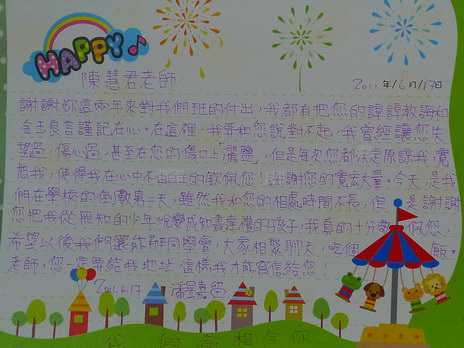 HAPPY
陳慧君老師:
2011年/6月/17日
謝謝妳這兩年來對我們班的付出,我都有把您的諄諄教誨和
金玉良言謹記在心。在這裡,我要和您說對不起,我曾經讓您失
望過,傷心過,甚至在您的傷口上「灑鹽」,但是每次您都決定原諒我,寬
恕我,使得我在心中不由自主的欽佩您!謝謝您的寬宏大量。今天,是我
們在學校的倒數第二天,雖然我和您的相處時間不長,但 是謝謝
您把我從無知的少年蛻變成知書達禮的孩子,我真的十分 佩您!
希望以後我們還能辦同學會,大家相聚聊天,吃個 飯。
老師!您一定要給我地址 這樣我才能寫信給您!
2011.6.17
我們 會想念您